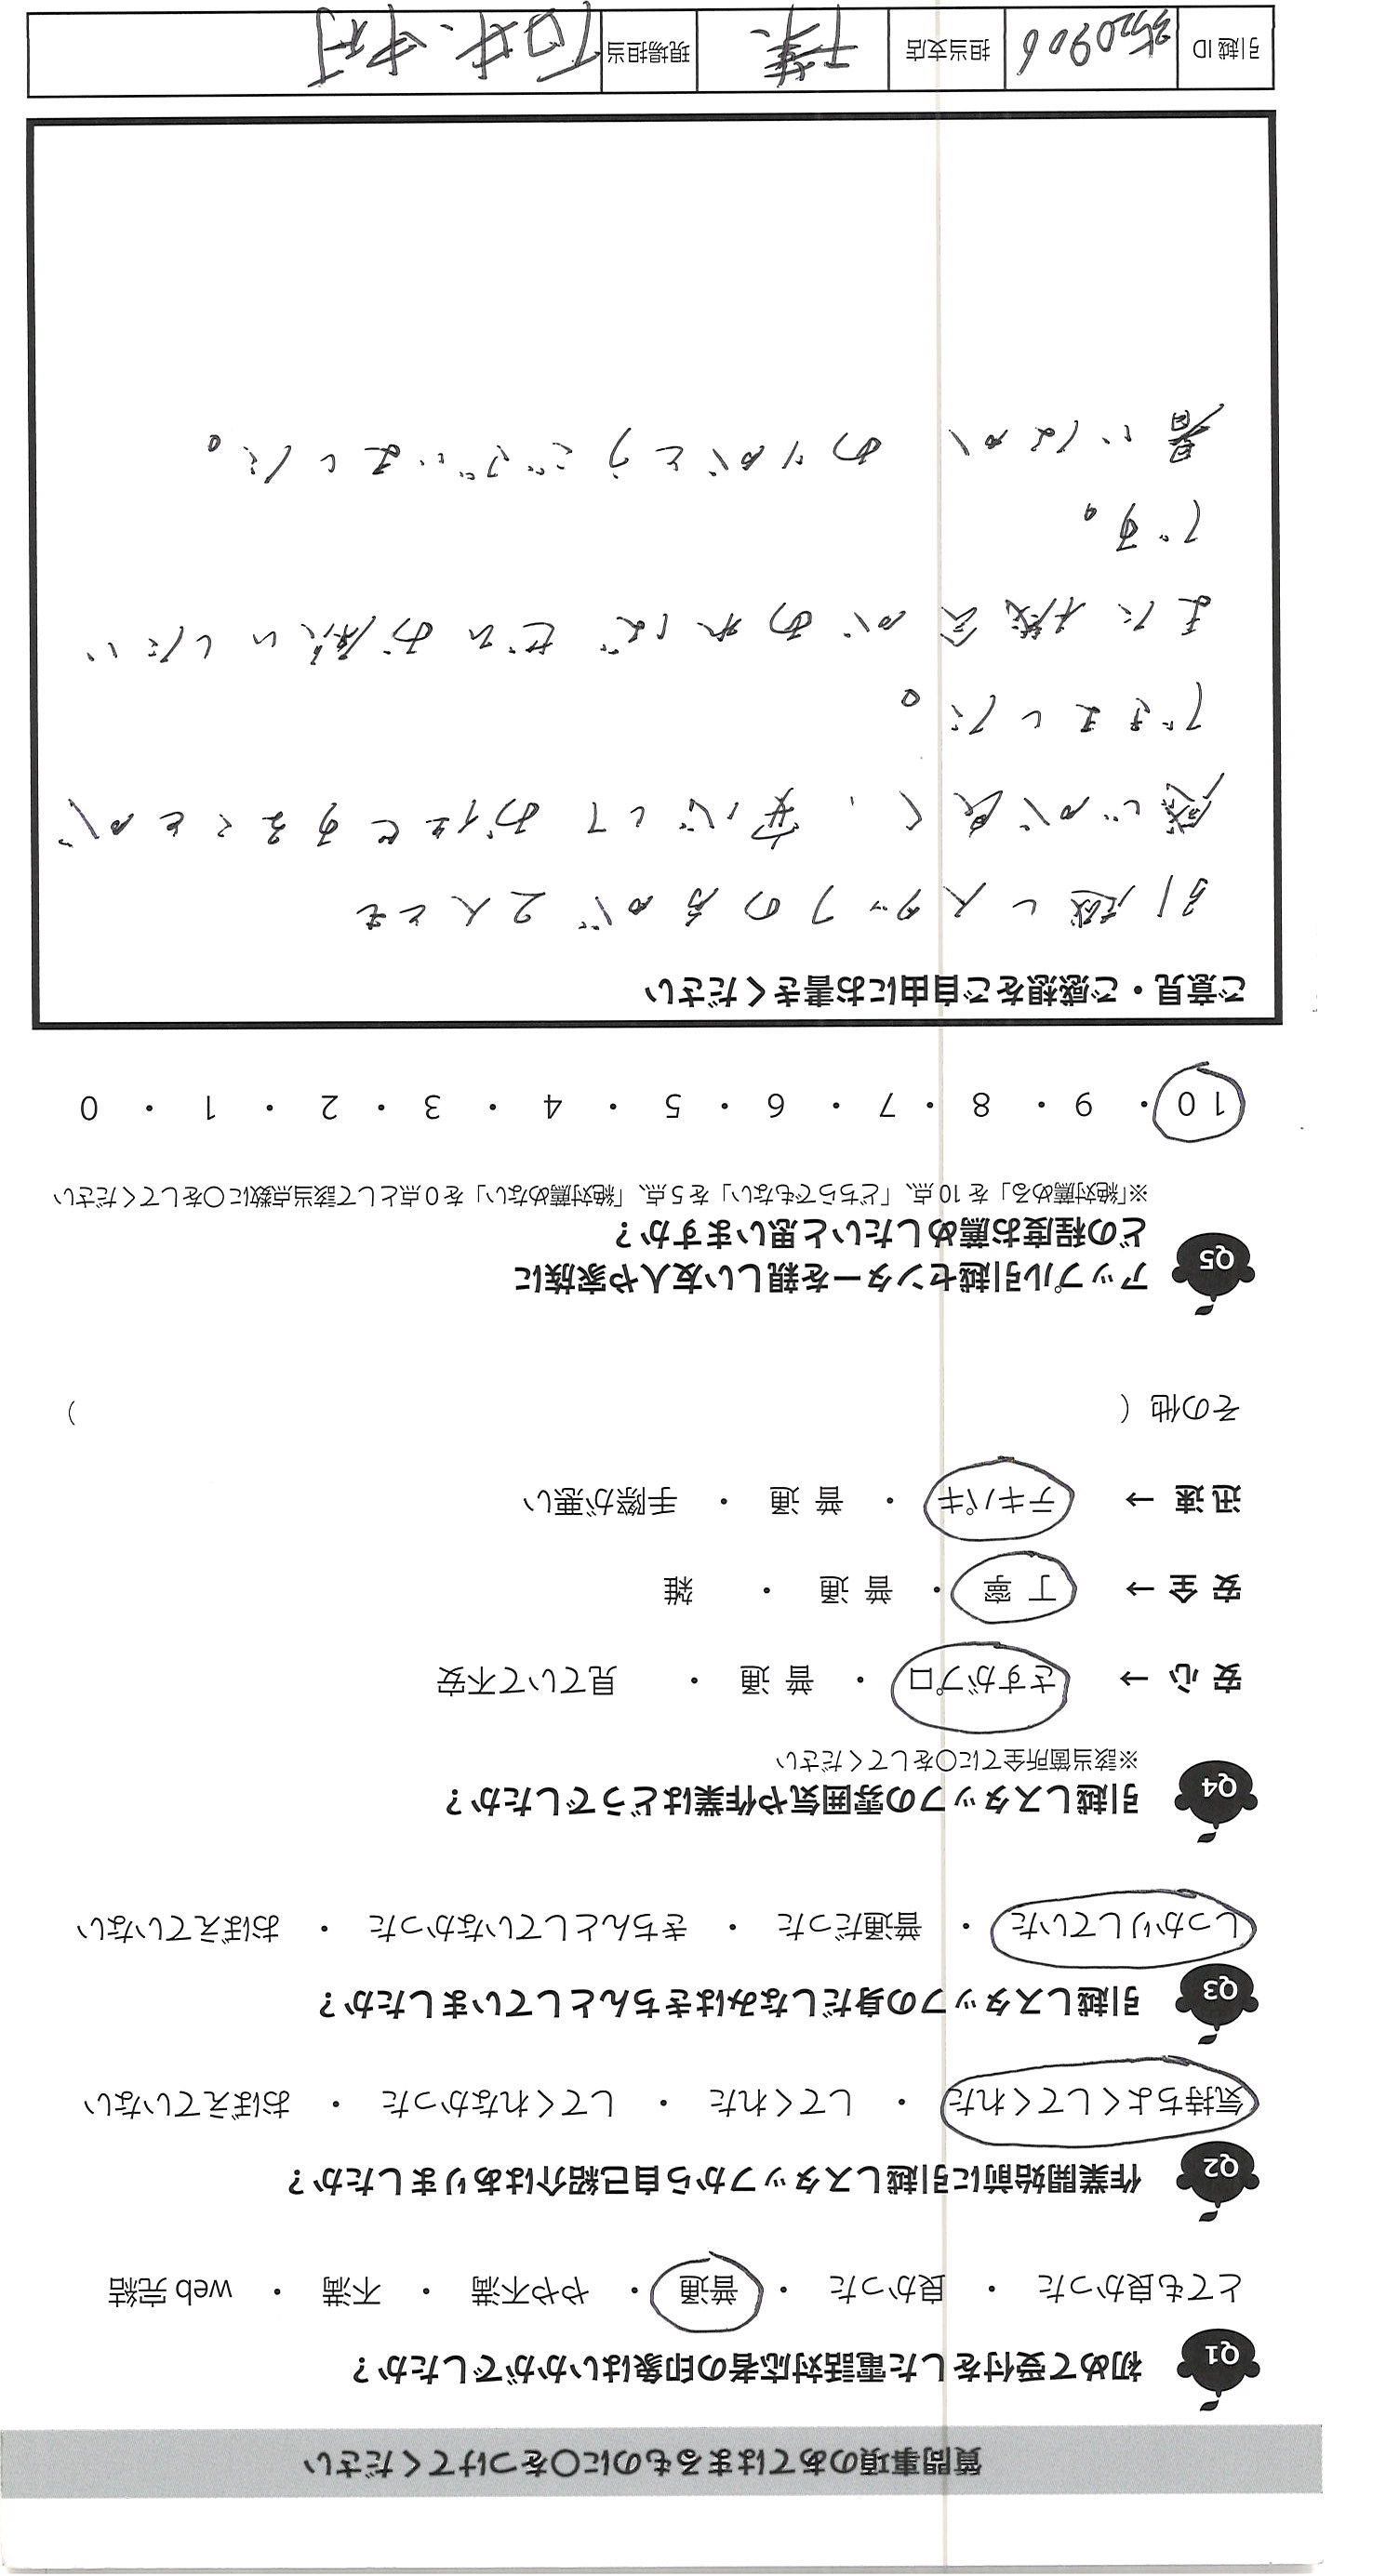 質問事項のあてはまるものに○をつけてください
Q1 初めて受付をした電話対応者の印象はいかがでしたか？
とても良かった ・ 良かった ・ 普通 ・ やや不満 ・ 不満 ・ web 完結
Q2 作業開始前に引越しスタッフから自己紹介はありましたか？
気持ちよくしてくれた ・ してくれた ・ してくれなかった ・ おぼえていない
Q3 引越しスタッフの身だしなみはきちんとしていましたか？
しっかりしていた ・ 普通だった ・ きちんとしていなかった ・ おぼえていない
Q4 引越しスタッフの雰囲気や作業はどうでしたか？
※該当箇所全てに○をしてください
安心 → さすがプロ ・ 普通 ・ 見ていて不安
安全 → 丁寧 ・ 普通 ・ 雑
迅速 → テキパキ ・ 普通 ・ 手際が悪い
その他（ ）
Q5 アップル引越センターを親しい友人や家族に
どの程度お薦めしたいと思いますか？
※「絶対薦める」を10点、「どちらでもない」を5点、「絶対薦めない」を0点として該当点数に○をしてください
10 ・ 9 ・ 8 ・ 7 ・ 6 ・ 5 ・ 4 ・ 3 ・ 2 ・ 1 ・ 0
ご意見・ご感想をご自由にお書きください
引越しスタッフの方が2人とも
感じが良く、安心してお任せすることが
できました。
また機会があればぜひお願いしたい
です。
暑いなか ありがとうございました。
引越ID 担当支店 千葉 現場担当 石井、中村